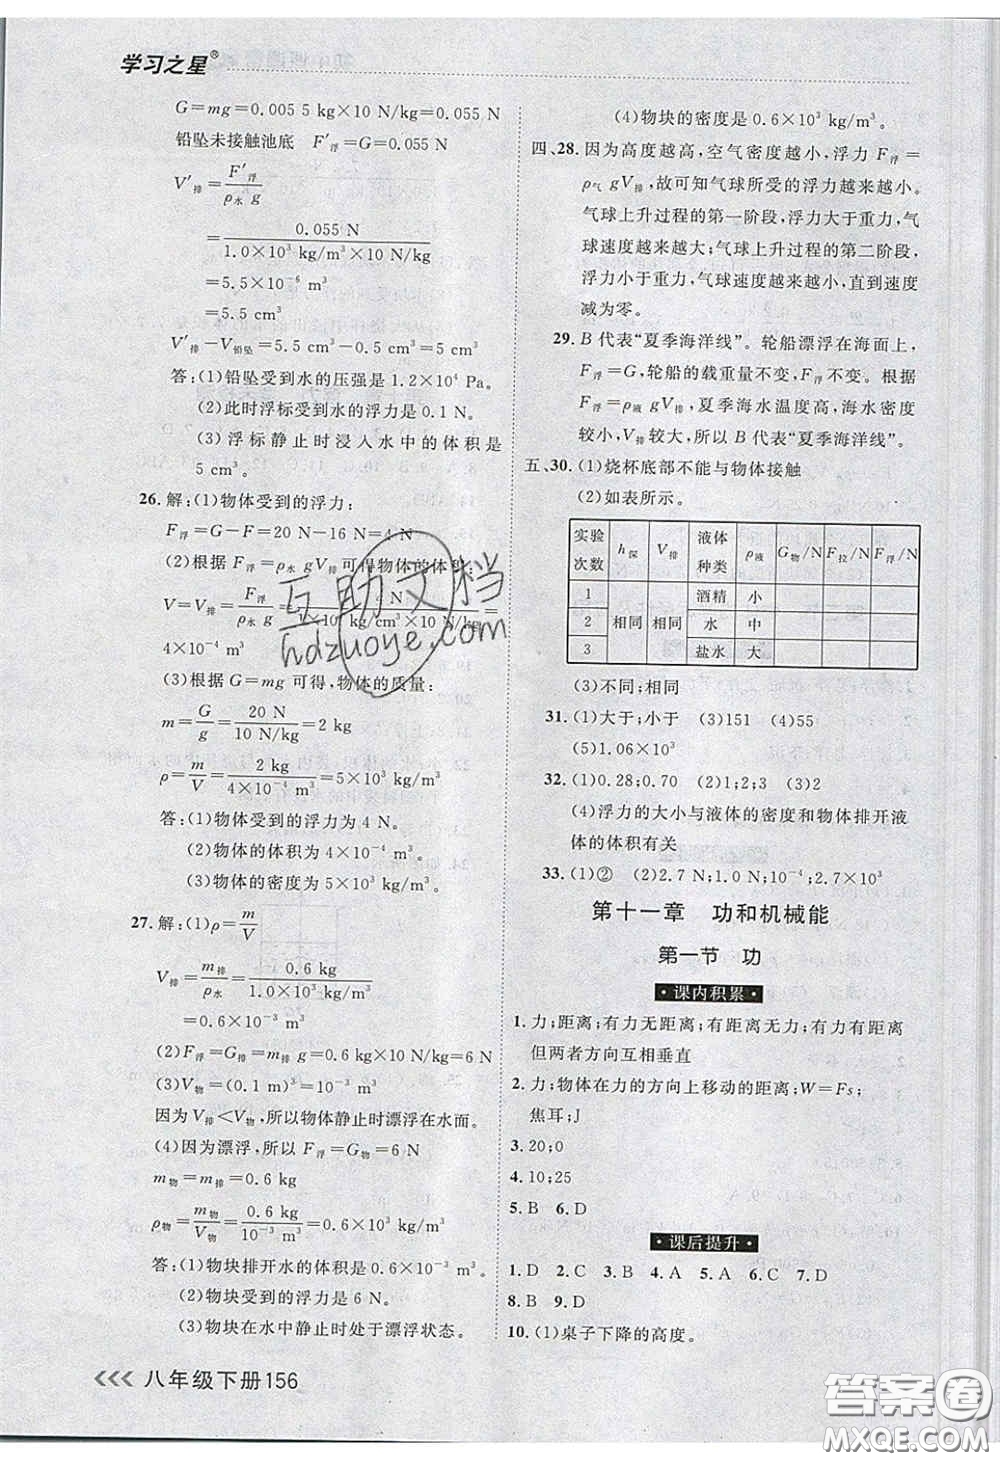 学习之星®
G=mg=0.005 5 kg×10 N/kg=0.055 N
铅坠未接触池底 F′浮=G=0.055 N
V′排=F′浮/ρ水 g
=0.055 N/1.0×10³ kg/m³×10 N/kg
=5.5×10⁻⁶ m³
=5.5 cm³
V′排-V铅坠=5.5 cm³-0.5 cm³=5 cm³
答:(1)铅坠受到水的压强是1.2×10⁴ Pa。
(2)此时浮标受到水的浮力是0.1 N。
(3)浮标静止时浸入水中的体积是
5 cm³。
26.解:(1)物体受到的浮力:
F浮=G-F=20 N-16 N=4 N
(2)根据 F浮=ρ水 gV排可得物体的体积:
V=V排=F浮/ρ水 g=
4×10⁻⁴ m³
(3)根据 G=mg 可得,物体的质量:
m=G/g=20 N/10 N/kg=2 kg
ρ=m/V=2 kg/4×10⁻⁴ m³=5×10³ kg/m³
答:(1)物体受到的浮力为4 N。
(2)物体的体积为4×10⁻⁴ m³。
(3)物体的密度为5×10³ kg/m³。
27.解:(1)ρ=m/V
V排=m排/ρ水=0.6 kg/1.0×10³ kg/m³
=0.6×10⁻³ m³
(2)F浮=G排=m排 g=0.6 kg×10 N/kg=6 N
(3)V物=(0.1 m)³=10⁻³ m³
因为V排<V物,所以物体静止时漂浮在水面。
(4)因为漂浮,所以 F浮=G物=6 N
m物=m排=0.6 kg
ρ物=m物/V物=0.6 kg/10⁻³ m³=0.6×10³ kg/m³
答:(1)物块排开水的体积是0.6×10⁻³ m³。
(2)物块受到的浮力是6 N。
(3)物块在水中静止时处于漂浮状态。
(4)物块的密度是0.6×10³ kg/m³。
四、28.因为高度越高,空气密度越小,浮力 F浮=
ρ气 gV排,故可知气球所受的浮力越来越小。
气球上升过程的第一阶段,浮力大于重力,气
球速度越来越大;气球上升过程的第二阶段,
浮力小于重力,气球速度越来越小,直到速度
减为零。
29. B 代表“夏季海洋线”。轮船漂浮在海面上,
F浮=G,轮船的载重量不变,F浮不变。根据
F浮=ρ液 gV排,夏季海水温度高,海水密度
较小,V排较大,所以 B 代表“夏季海洋线”。
五、30.(1)烧杯底部不能与物体接触
(2)如表所示。
实验次数 h深 V排 液体种类 ρ液 G物/N F拉/N F浮/N
1 酒精 小
2 相同 相同 水 中
3 盐水 大
(3)不同;相同
31.(1)大于;小于 (3)151 (4)55
(5)1.06×10³
32.(1)0.28;0.70 (2)1;2;3 (3)2
(4)浮力的大小与液体的密度和物体排开液
体的体积有关
33.(1)② (2)2.7 N;1.0 N;10⁻⁴;2.7×10³
第十一章 功和机械能
第一节 功
·课内积累·
1.力;距离;有力无距离;有距离无力;有力有距离
但两者方向互相垂直
2.力;物体在力的方向上移动的距离;W=Fs;
焦耳;J
3.20;0
4.10;25
5.B 6.D
·课后提升·
1.D 2.C 3.B 4.A 5.A 6.C 7.D
8.B 9.D
10.(1)桌子下降的高度。
八年级下册156
互助文档
hdzuoye.com
答案圈
MXQE.COM